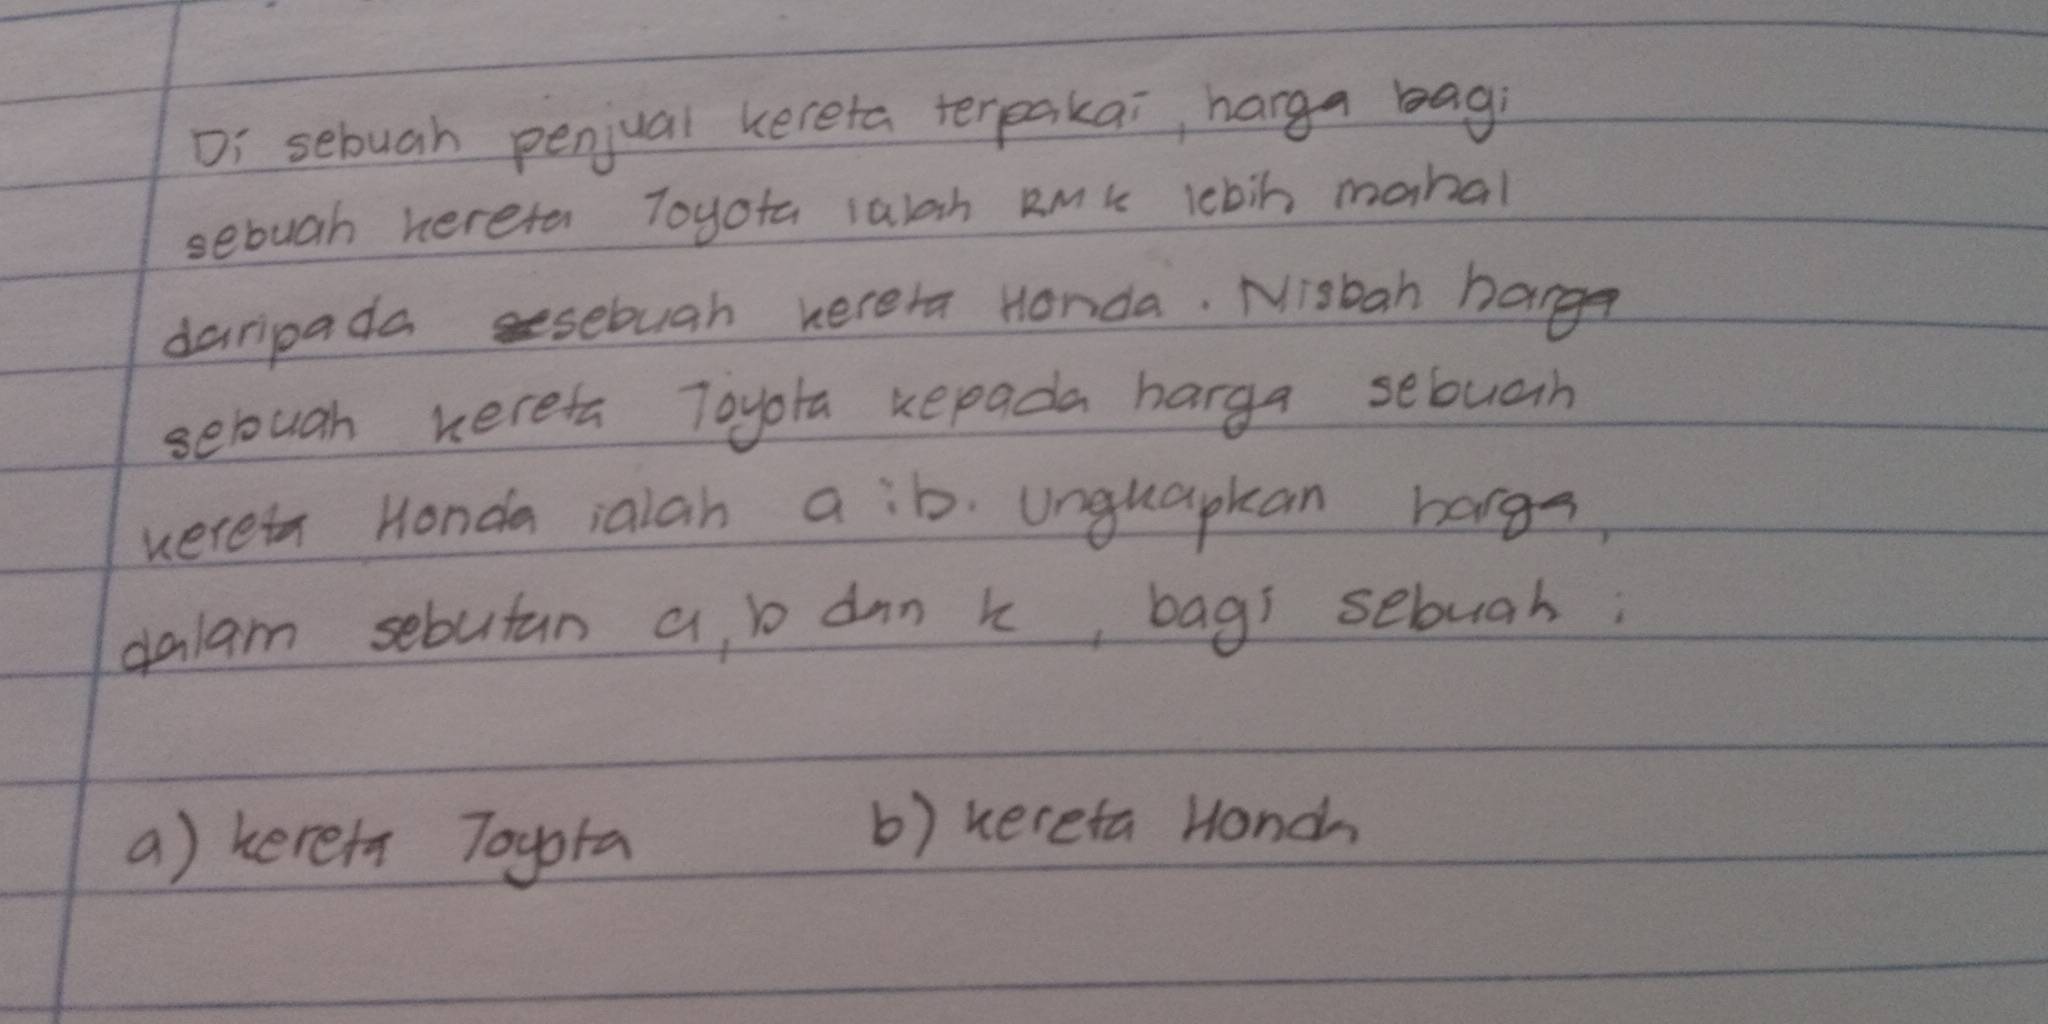 Di sebuah penjual kereta terpakai, harga bagi
sebuah kereta Toyota ialah RM k lebih mahal
daripada sebuah kereta Honda. Nisbah harga
sebuah kereta Toyota kepada harga sebuah
kereta Honda ialah a : b. Ungkapkan harga,
dalam sebutan a, b dan k, bagi sebuah :
a) kereta Toyota b) kereta Honda